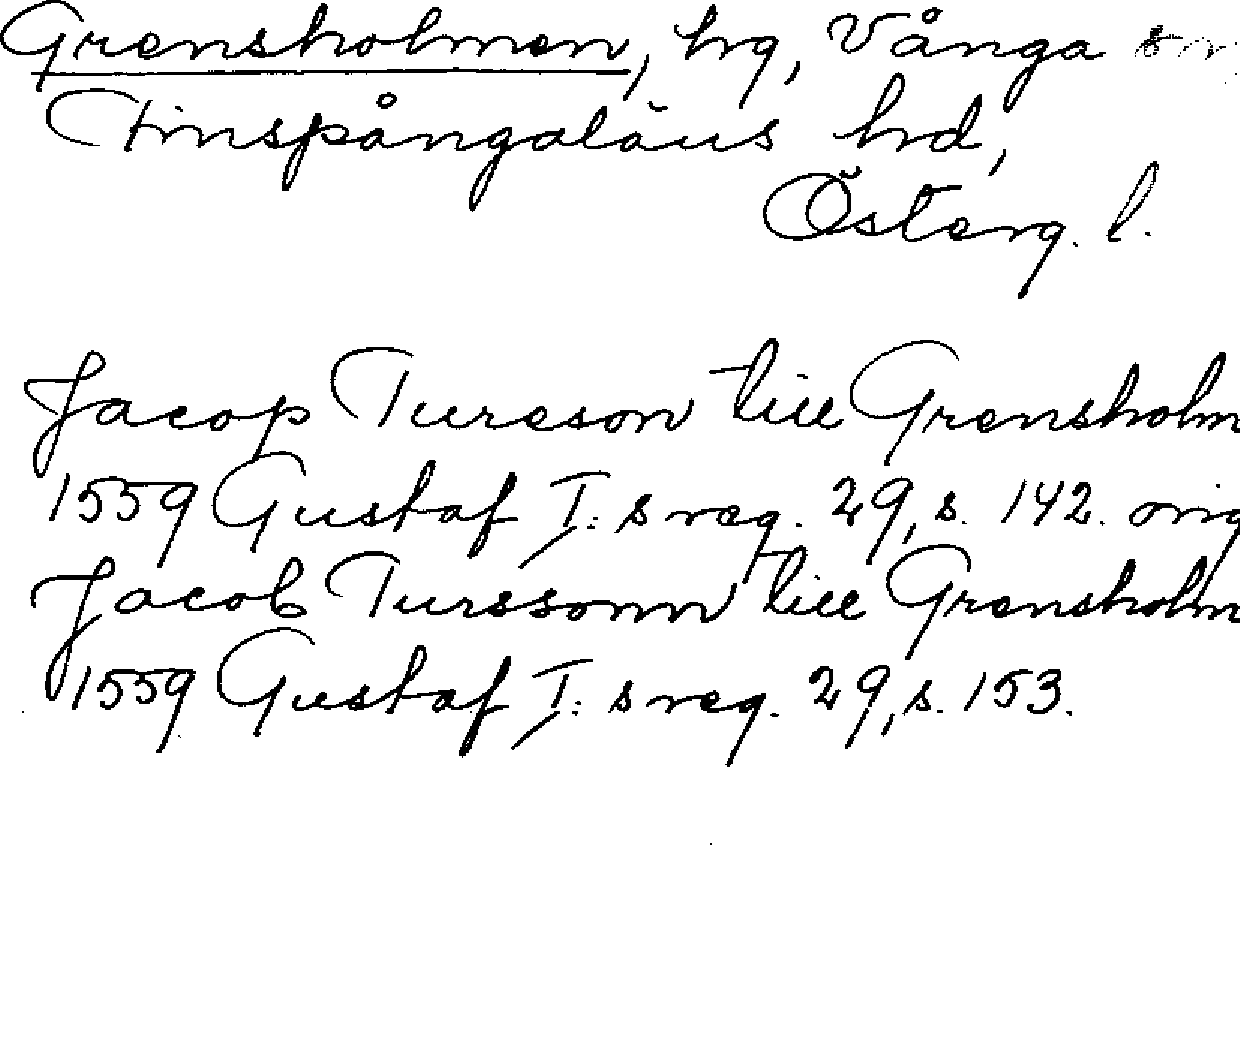 Grensholmen, hg, Vånga sn,
Finspångaläns hrd,
Österg. l.
Jacop Tureson till Grensholm
1559 Gustaf I:s reg. 29, s. 142. orig
Jacob Turssonn till Grensholm
1559 Gustaf I:s reg. 29, s. 153.